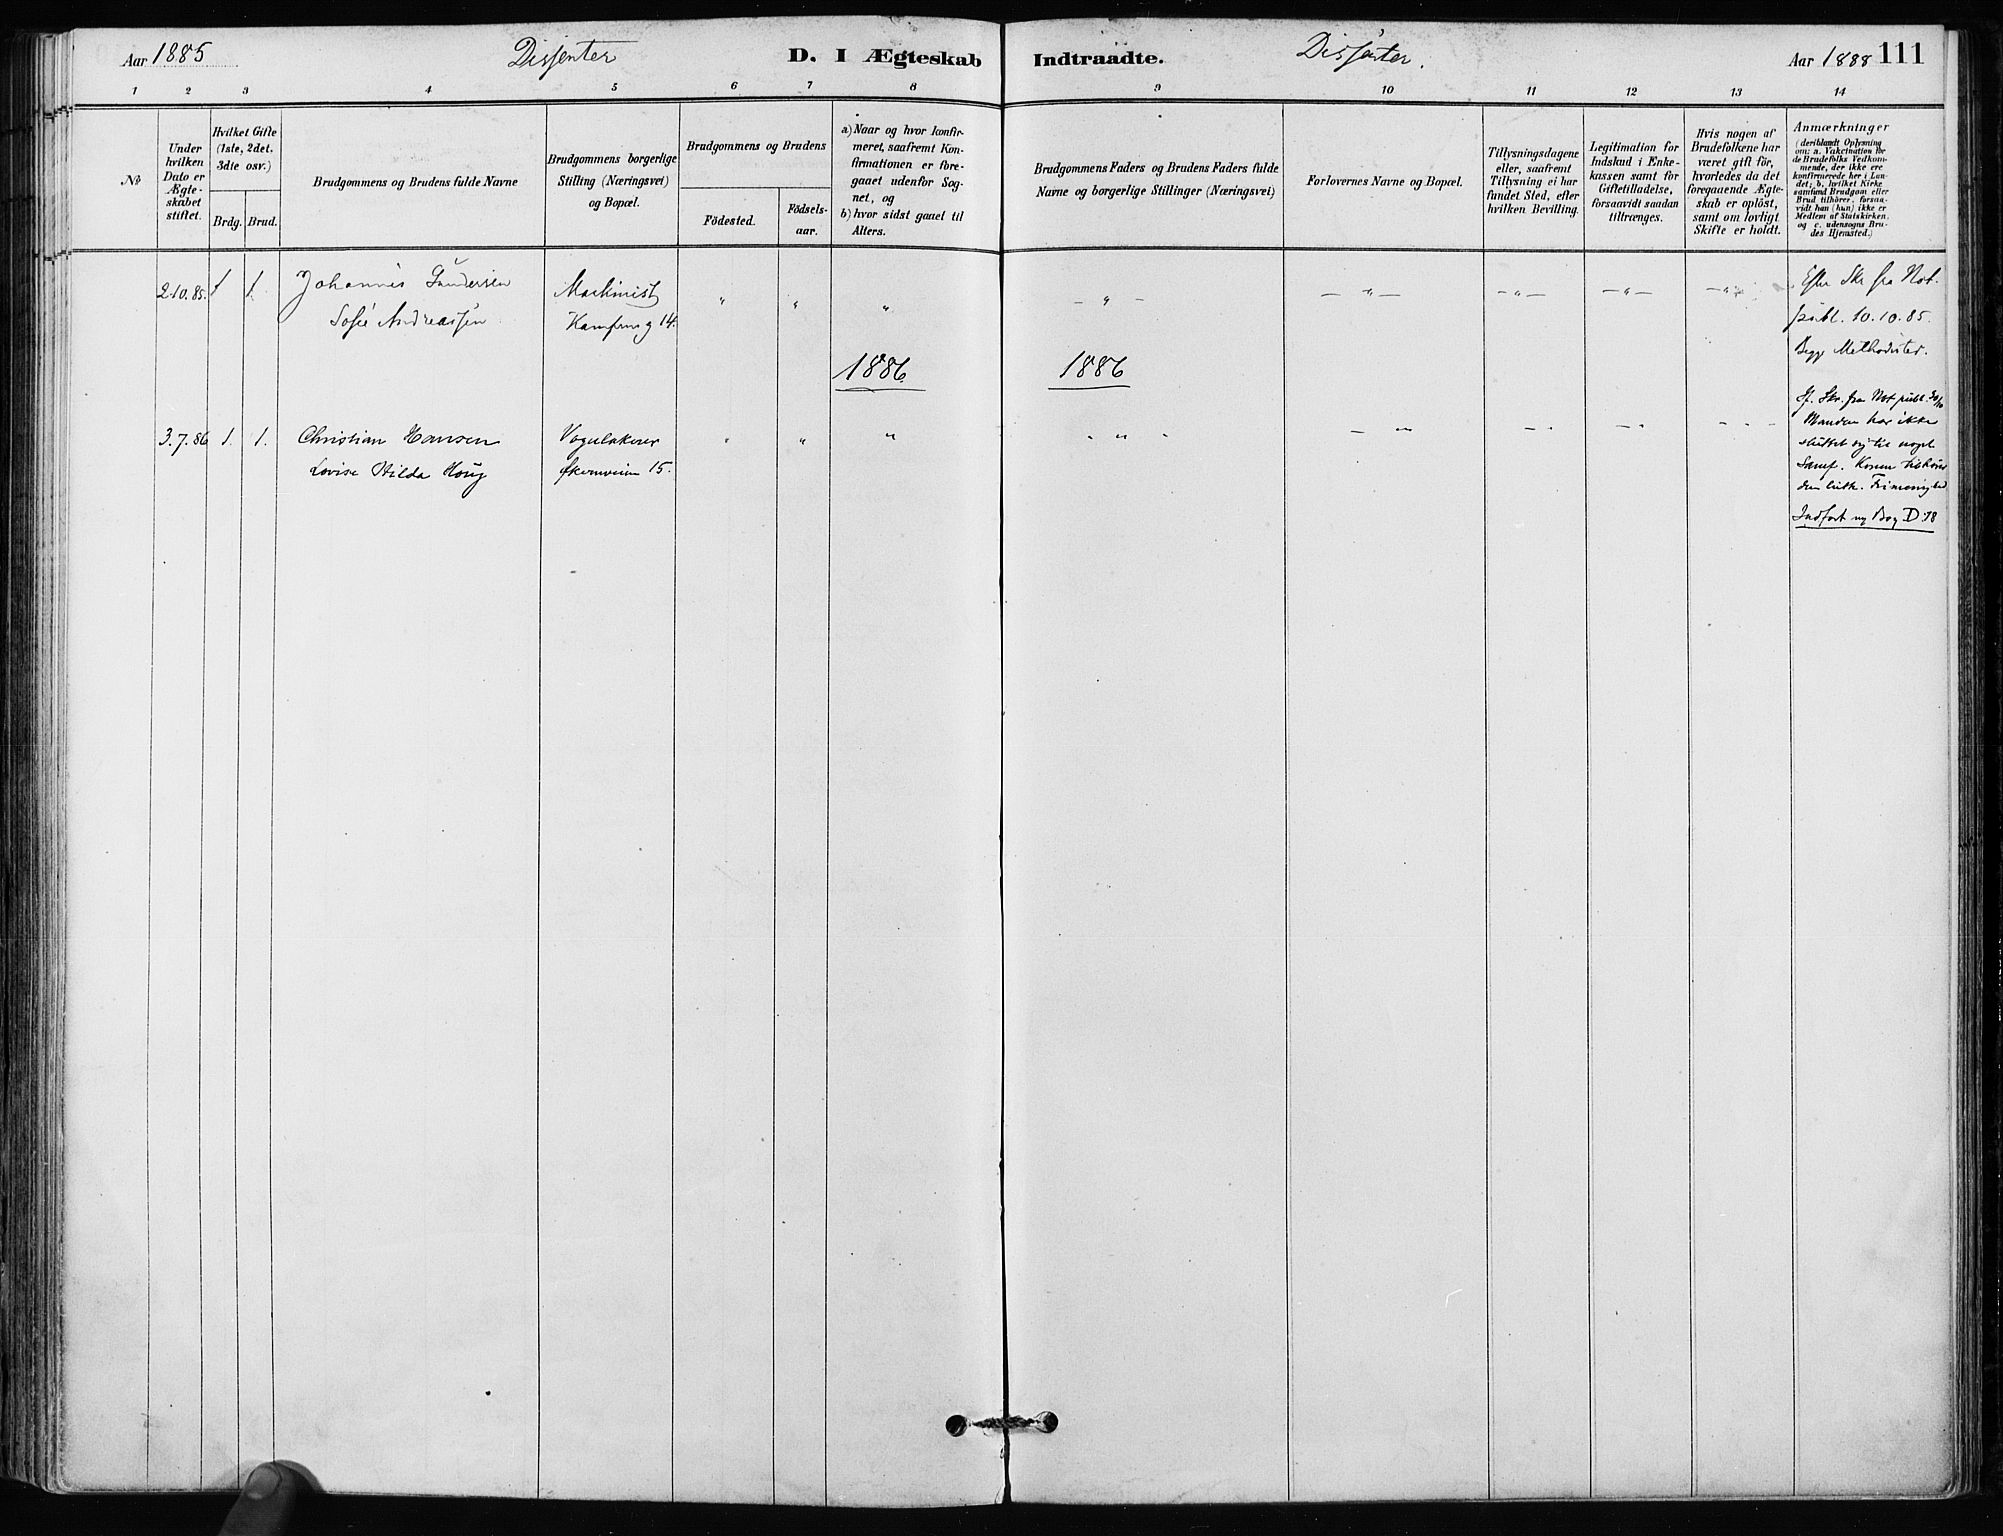 Aar 1885 Dissenter D. I Ægteskab Indtraadte. Dissenter. Aar 1888 111
1 2 3 4 5 6 7 8 9 10 11 12 13 14
№
Under
hvilken
Dato er
Ægte-
skabet
stiftet.
Hvilket Gifte
(1ste, 2det.
3die osv.)
Brdg. Brud.
Brudgommens og Brudens fulde Navne
Brudgommens borgerlige
Stilling (Næringsvei)
og Bopæl.
Brudgommens og Brudens
Födested.
Födsels-
aar.
a) Naar og hvor konfir-
meret, saafremt Kon-
firmationen er fore-
gaaet udenfor Sog-
net, og
b) hvor sidst gaaet til
Alters.
Brudgommens Faders og Brudens Faders fulde
Navne og borgerlige Stillinger (Næringsvei)
Forlovernes Navne og Bopæl.
Tillysningsdagene
eller, saafremt
Tillysning ei har
fundet Sted, efter
hvilken Bevilling.
Legitimation for
Indskud i Enke-
kassen samt for
Giftetilladelse,
forsaavidt saadan
tiltrænges.
Hvis nogen af
Brudefolkene har
været gift för,
hvorledes da det
foregaaende Ægte-
skab er oplöst,
samt om lovligt
Skifte er holdt.
Anmærkninger
(deriblandt Oplysning
om: a. Vakcination for
de Brudefolks Vedkom-
mende, der ikke ere
konfirmerede her i Lan-
det; b. hvilket Kirke
samfund Brudgom eller
Brud tilhörer, forsaa-
vidt han (hun) ikke er
Medlem af Statskirken,
og c. udensogns Bru-
des Hjemsted.)
2.10.85. 1 1. Johannes Gundersen Machinist " " " – " – – " – – " – – " – – " – Efter Skr fra Not.
Sofie Andreassen Kampensg 14. publ. 10.10.85.
Begge Methodister.
1886. 1886
3.7.86 1. 1. Christian Hansen
Lovise Hilda Houg 15.
Skr. fra Not publ. 30/10
Manden har ikke
sluttet sig til noget
Samf. Konen tilhører
den luth. Frimenighed
Indført ny Bog D:18